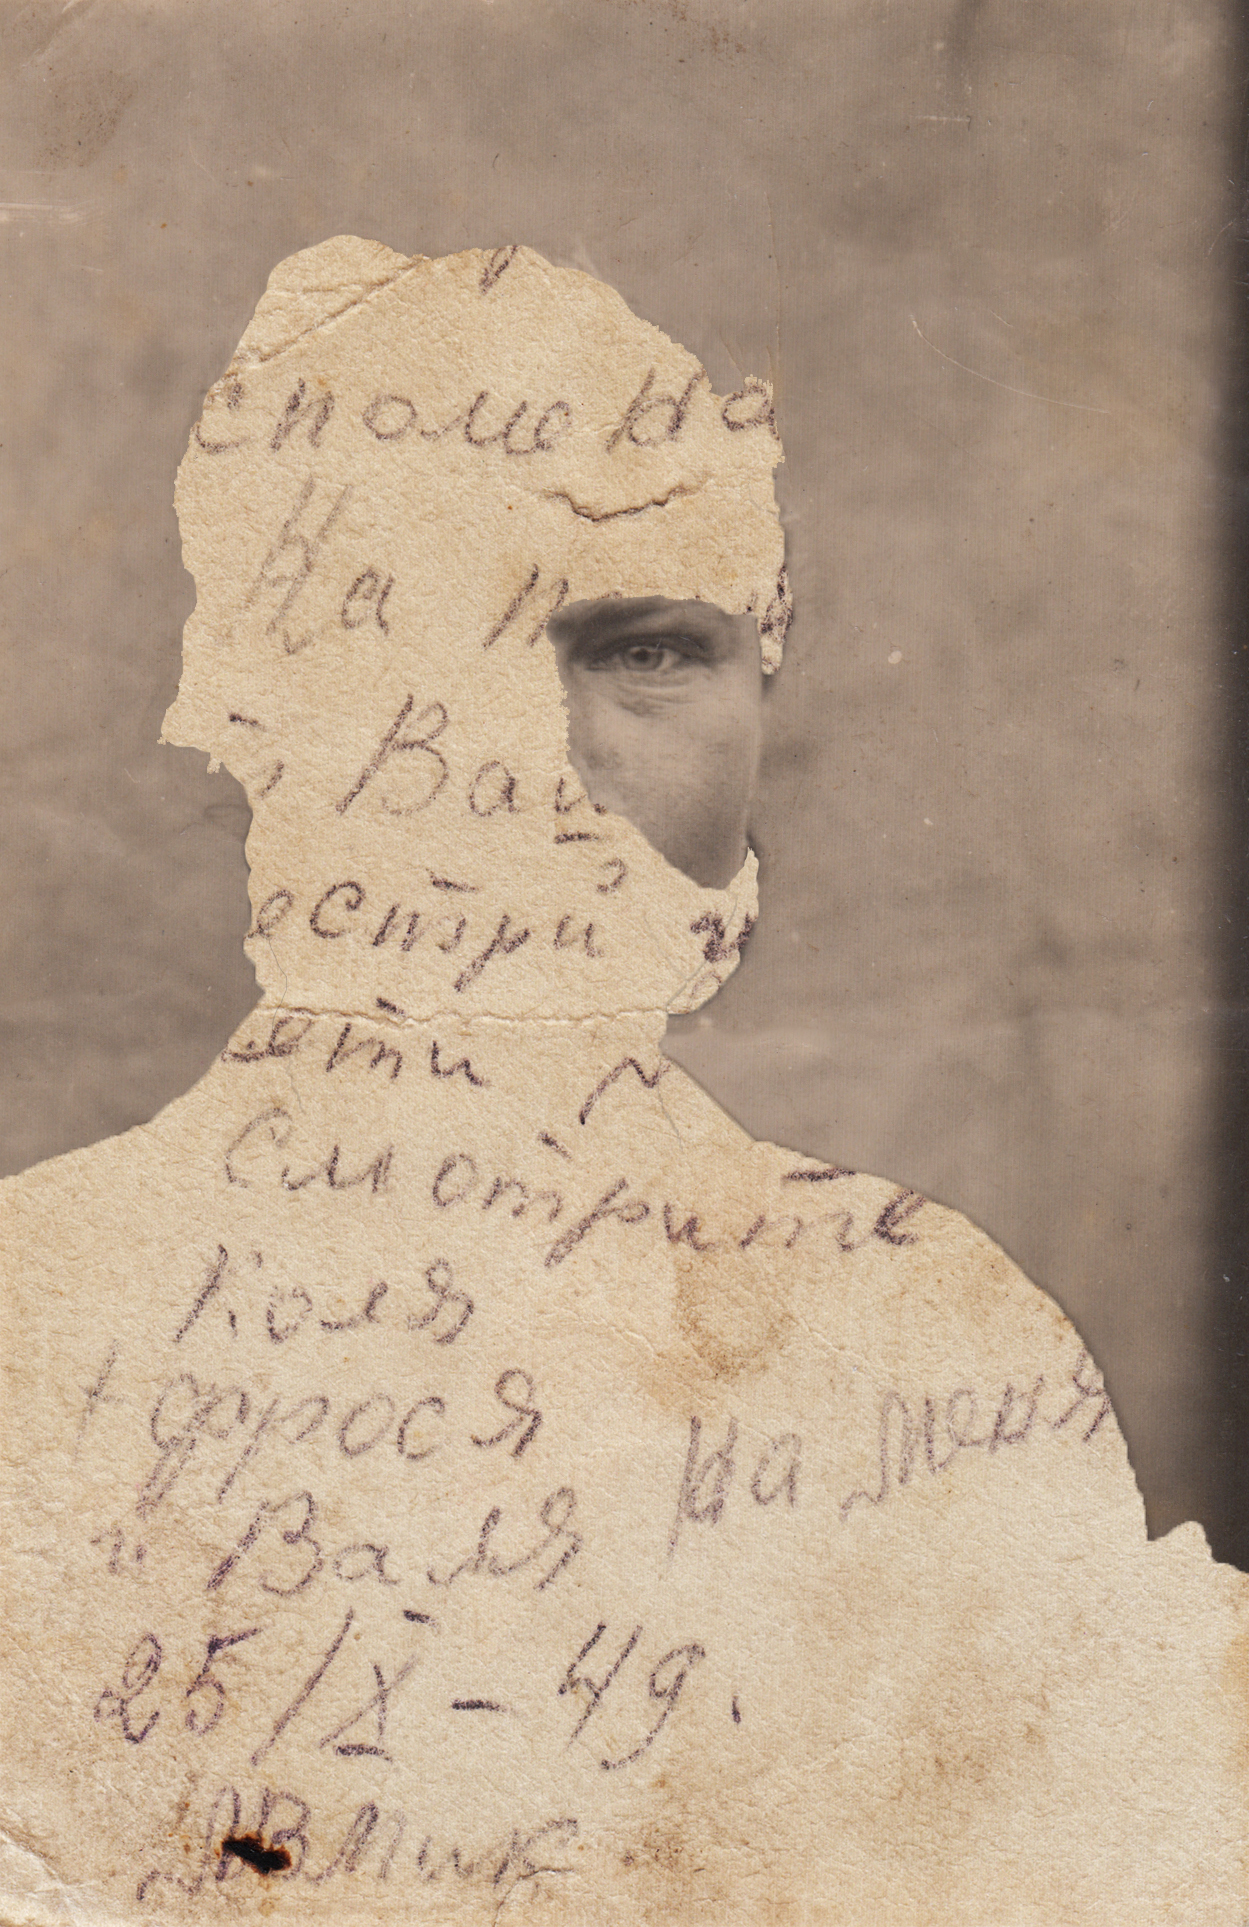 спомена
На
Ваш
естри и
ети
Смотрите
Коля
Фрося на меня
и Валя
25/IX-49.